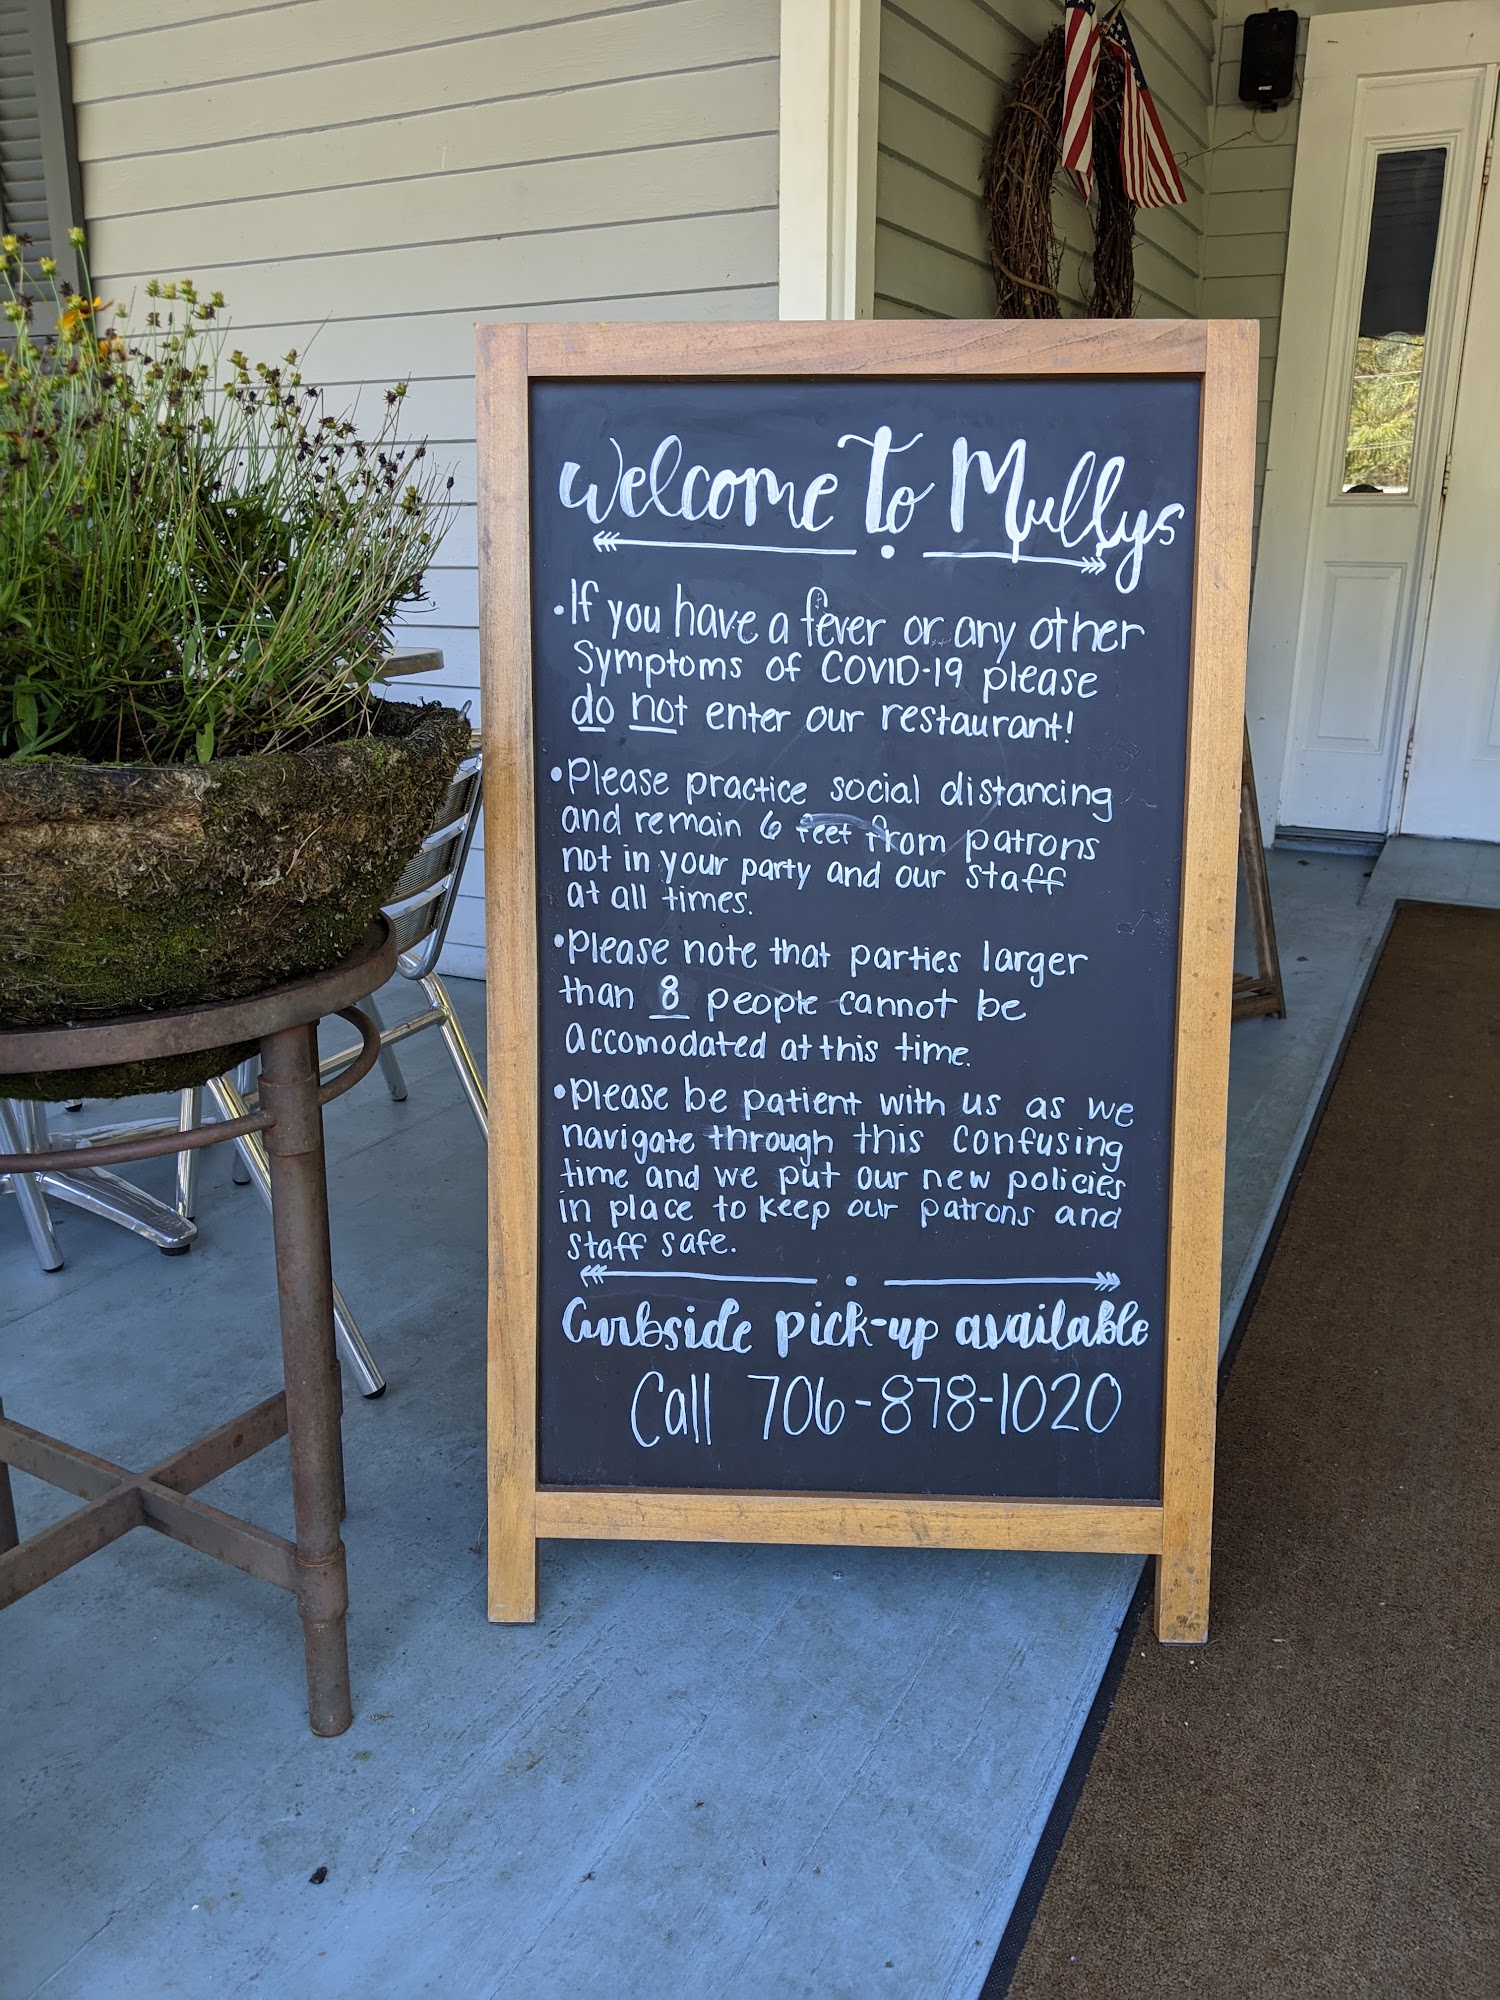 Welcome To Mullys
• If you have a fever or any other
symptoms of COVID-19 please
do not enter our restaurant!
• Please practice social distancing
and remain 6 feet from patrons
not in your party and our staff
at all times.
• Please note that parties larger
than 8 people cannot be
accomodated at this time.
• Please be patient with us as we
navigate through this confusing
time and we put our new policies
in place to keep our patrons and
staff safe.
Curbside pick-up available
Call 706-878-1020